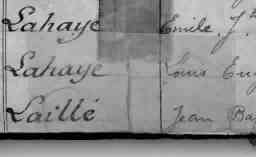 Lahaye Emile. J.
Lahaye Louis Eug
Laillé Jean Ba